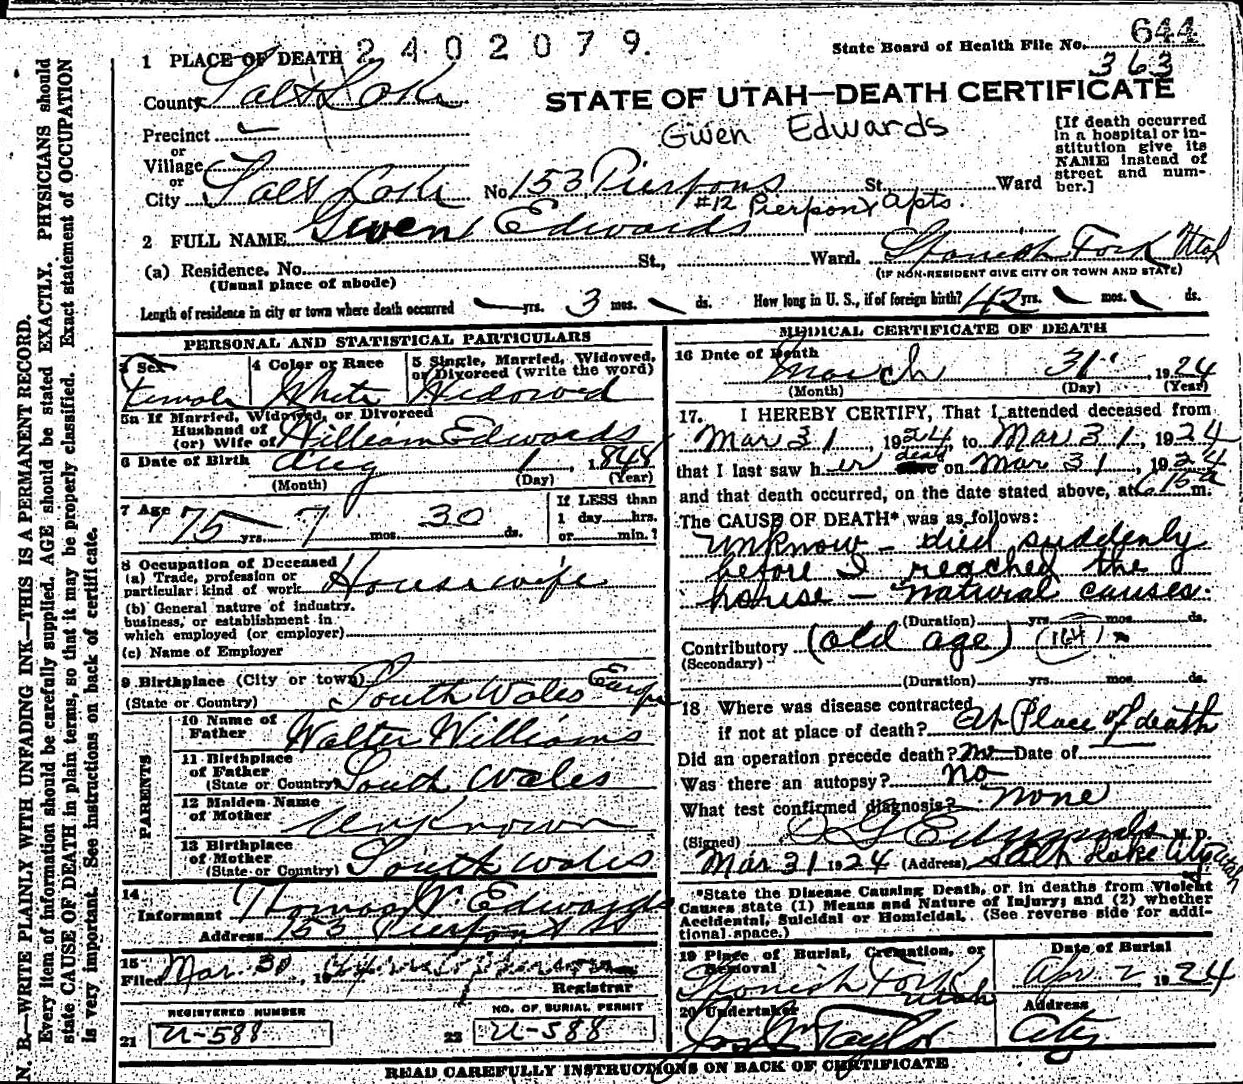 2402079.
State Board of Health File No. 644
363
1 PLACE OF DEATH
County Salt Lake
STATE OF UTAH—DEATH CERTIFICATE
Gwen Edwards
Precinct
or
Village
or
City Salt Lake No. 153 Pierpont St. Ward
#12 Pierpont Apts.
[If death occurred
in a hospital or in-
stitution give its
NAME instead of
street and num-
ber.]
2 FULL NAME Gwen Edwards
(a) Residence. No. St., Ward. Spanish Fork Utah
(Usual place of abode)
(IF NON-RESIDENT GIVE CITY OR TOWN AND STATE)
Length of residence in city or town where death occurred — yrs. 3 mos. ds. How long in U. S., if of foreign birth? 42 yrs. mos. ds.
PERSONAL AND STATISTICAL PARTICULARS
3 Sex
Female
4 Color or Race
White
5 Single, Married, Widowed,
or Divorced (write the word)
Widowed
5a If Married, Widowed, or Divorced
Husband of
(or) Wife of William Edwards
6 Date of Birth Aug 1, 1848
(Month) (Day) (Year)
7 Age 75 yrs. 7 mos. 30 ds.
If LESS than
1 day hrs.
or min.?
8 Occupation of Deceased
(a) Trade, profession or
particular kind of work Housewife
(b) General nature of industry,
business, or establishment in
which employed (or employer)
(c) Name of Employer
9 Birthplace (City or town)
(State or Country) South Wales Europe
PARENTS
10 Name of
Father Walter Williams
11 Birthplace
of Father
(State or Country) South Wales
12 Maiden Name
of Mother Unknown
13 Birthplace
of Mother
(State or Country) South Wales
14
Informant Thomas W. Edwards
Address 153 Pierpont St
15
Filed Mar. 30, 1924
Registrar
REGISTERED NUMBER
21 U-588
NO. OF BURIAL PERMIT
22 U-588
MEDICAL CERTIFICATE OF DEATH
16 Date of Death
March 31 1924
(Month) (Day) (Year)
17. I HEREBY CERTIFY, That I attended deceased from
Mar 31, 1924 to Mar 31, 1924
that I last saw her dead on Mar 31, 1924
and that death occurred, on the date stated above, at 6 15 a m.
The CAUSE OF DEATH* was as follows:
Unknow - died suddenly
before I reached the
house - natural causes.
(Duration) yrs. mos. ds.
Contributory (old age) (164)
(Secondary)
(Duration) yrs. mos. ds.
18 Where was disease contracted
if not at place of death? At Place of death
Did an operation precede death? no Date of
Was there an autopsy? no
What test confirmed diagnosis? none
(Signed) M. D.
Mar 31 1924 (Address) Salt Lake City Utah
*State the Disease Causing Death, or in deaths from Violent
Causes, state (1) Means and Nature of Injury; and (2) whether
Accidental, Suicidal or Homicidal. (See reverse side for addi-
tional space.)
19 Place of Burial, Cremation, or
Removal
Spanish Fork
Utah
Date of Burial
Apr. 2 1924
20 Undertaker
Jos. Wm Taylor
Address
City
READ CAREFULLY INSTRUCTIONS ON BACK OF CERTIFICATE
N. B.—WRITE PLAINLY WITH UNFADING INK—THIS IS A PERMANENT RECORD.
Every item of information should be carefully supplied. AGE should be stated EXACTLY. PHYSICIANS should
state CAUSE OF DEATH in plain terms, so that it may be properly classified. Exact statement of OCCUPATION
is very important. See instructions on back of certificate.